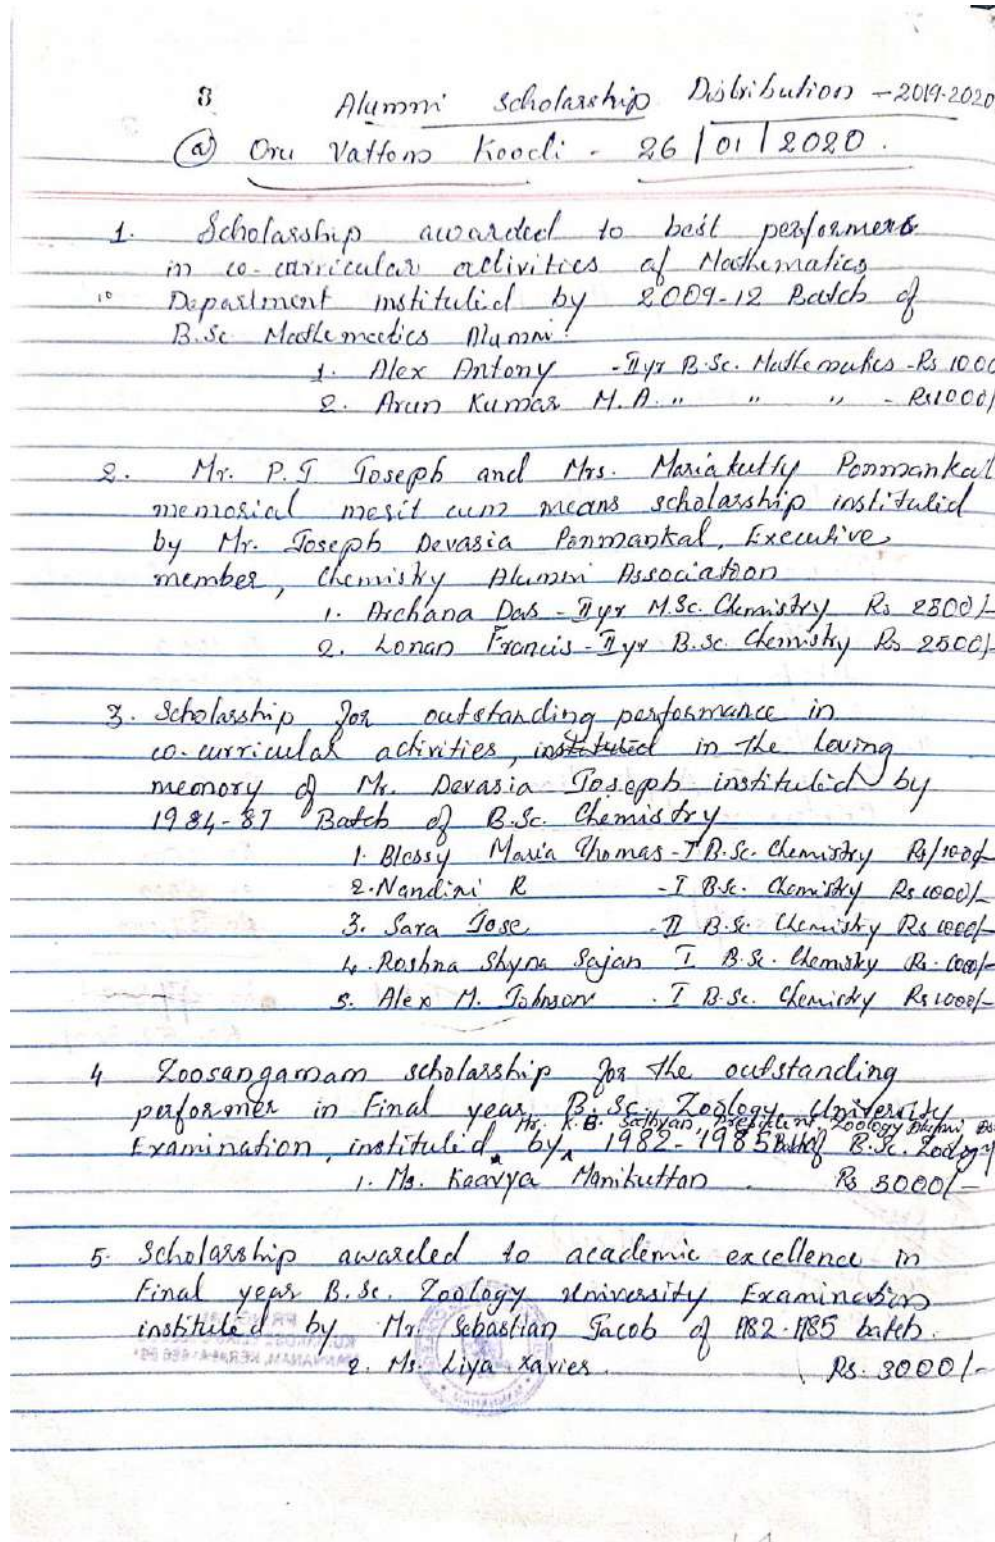 8. Alumni Scholarship Distribution - 2019-2020
@ Oru Vattom Koodi - 26/01/2020.
1. Scholarship awarded to best performers
in co-curricular activities of Mathematics
10 Department instituted by 2009-12 Batch of
B.Sc. Mathematics Alumni:
1. Alex Antony - II yr B.Sc. Mathematics - Rs 1000
2. Arun Kumar M.A. " " " - Rs 1000/
2. Mr. P.J Joseph and Mrs. Mariakutty Ponmankal
memorial merit cum means scholarship instituted
by Mr. Joseph Devasia Ponmankal, Executive
member, Chemistry Alumni Association
1. Archana Das - II yr M.Sc. Chemistry Rs 2500/-
2. Lonan Francis - II yr B.Sc. Chemistry Rs 2500/-
3. Scholarship for outstanding performance in
co-curricular activities, instituted in the loving
memory of Mr. Devasia Joseph instituted by
1984-87 Batch of B.Sc. Chemistry
1. Blessy Maria Thomas - I B.Sc. Chemistry Rs/1000/-
2. Nandini R - I B.Sc. Chemistry Rs 1000/-
3. Sara Jose - II B.Sc. Chemistry Rs 1000/-
4. Roshna Shyna Sajan I B.Sc. Chemistry Rs. 1000/-
5. Alex M. Johnson - I B.Sc. Chemistry Rs 1000/-
4 Zoosangamam scholarship for the outstanding
performer in Final year B.Sc. Zoology University
Mr. K.B. Sathyan, President, Zoology Alumni
Examination, instituted by 1982-1985 Batch of B.Sc. Zoology
1. Ms. Kaavya Manikuttan. Rs 3000/-
5. Scholarship awarded to academic excellence in
Final year B.Sc. Zoology University Examination
instituted by Mr. Sebastian Jacob of 1982-1985 batch.
2. Ms. Liya Xavier. Rs. 3000/-